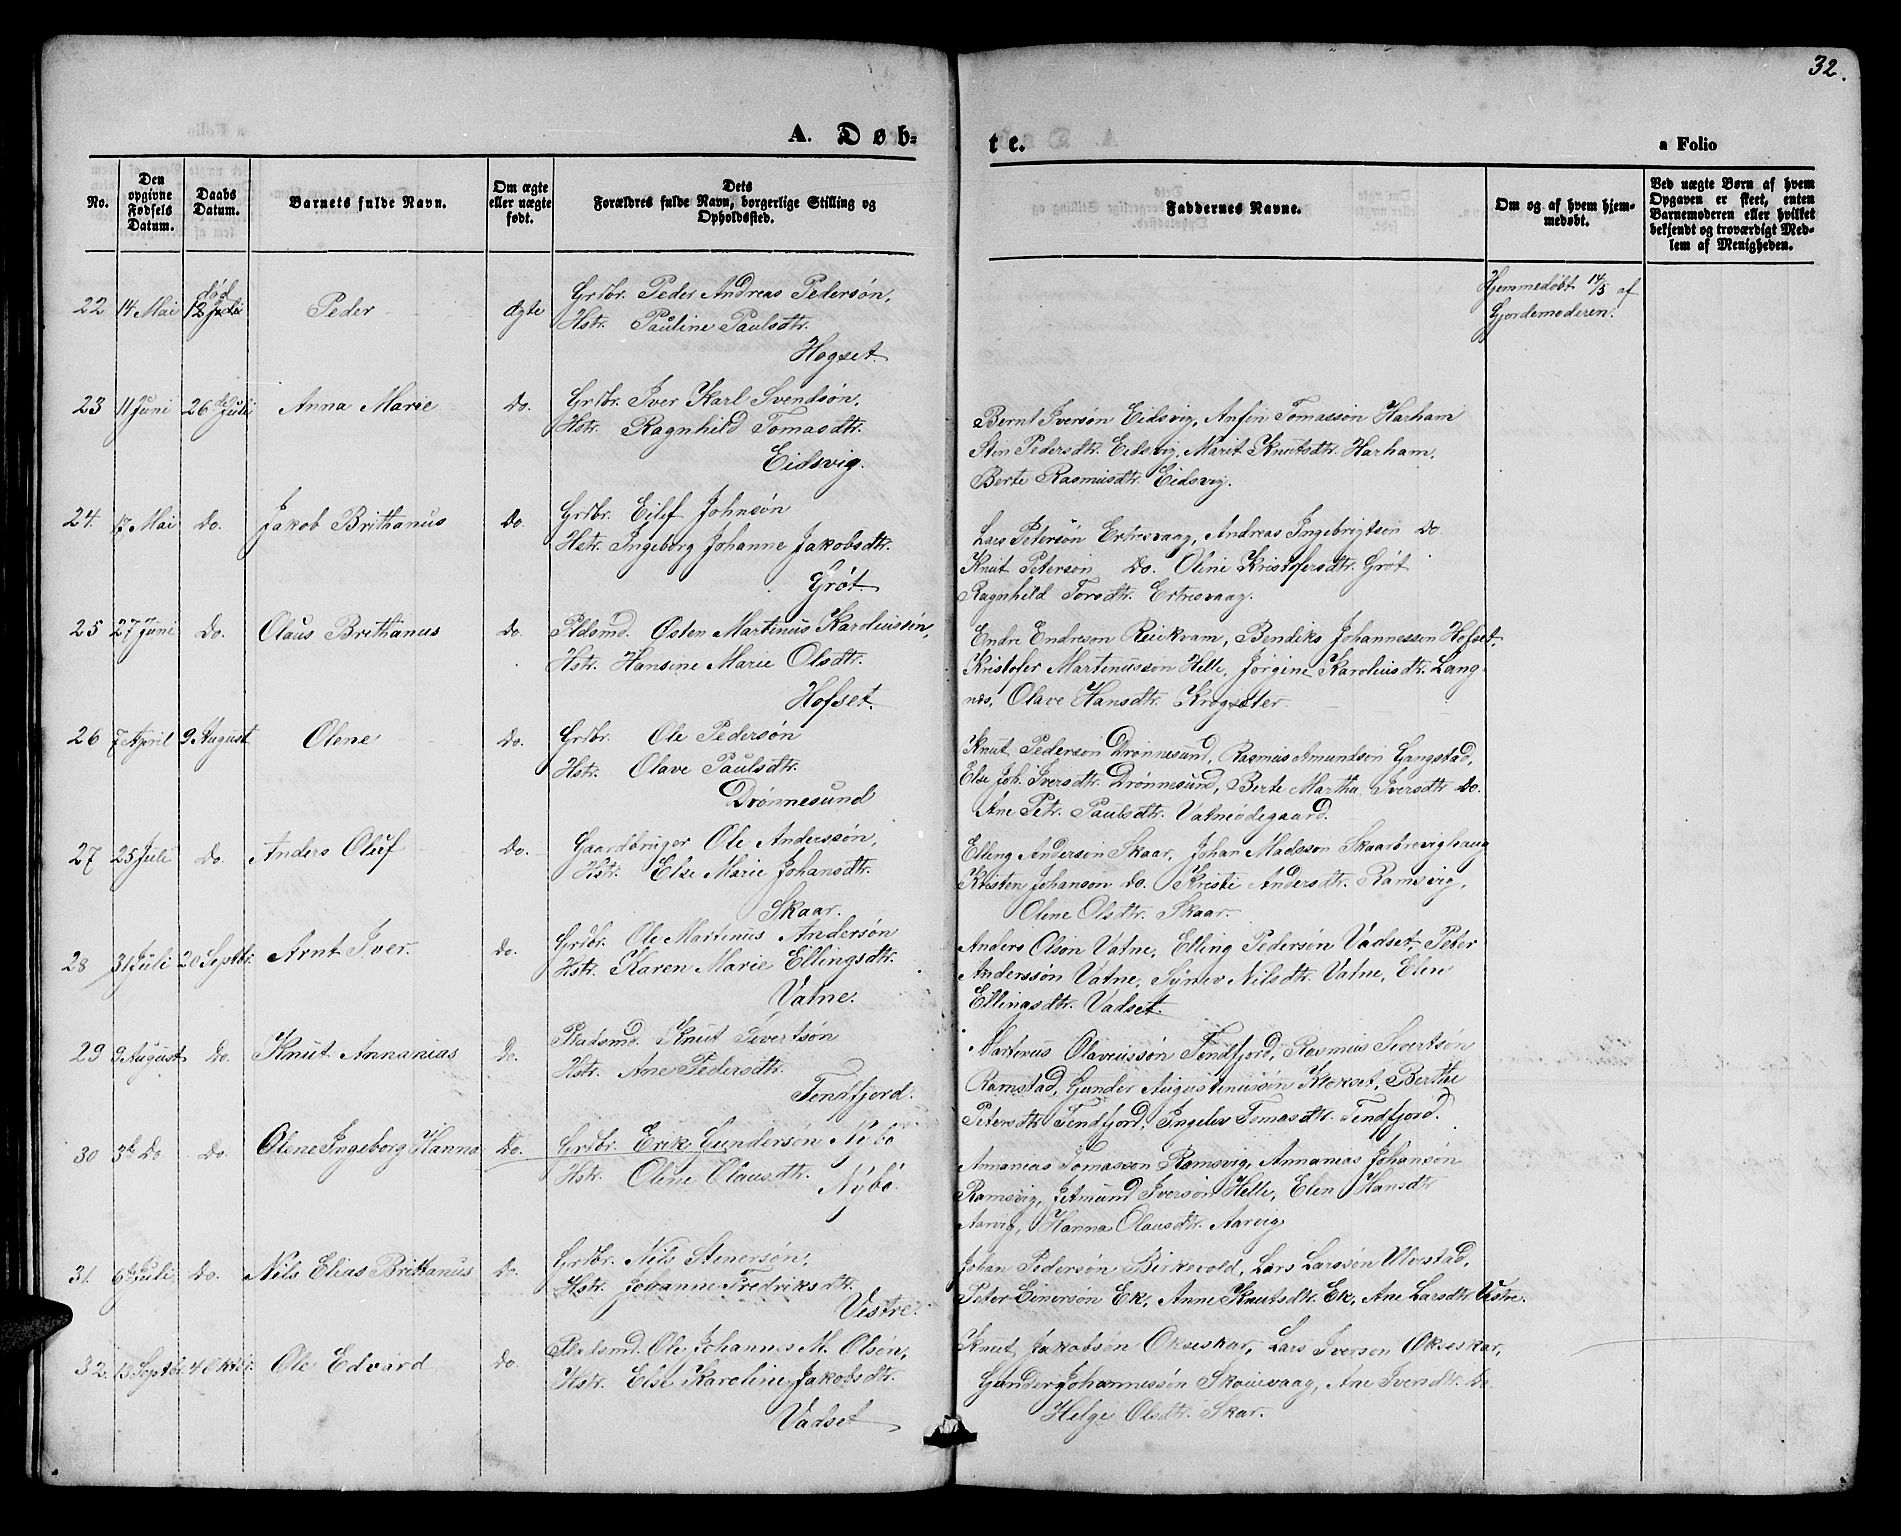 32.
A. Døb=
te.
a Folio
No.
Den opgivne Fødsels Datum.
Daabs Datum.
Barnets fulde Navn.
Om ægte eller uægte født.
Dets Forældres fulde Navn, borgerlige Stilling og Opholdssted.
Faddernes Navne.
Om og af hvem hjemmedøbt.
Ved uægte Børn af hvem Opgaven er skeet, enten Barnemoderen eller hvilket bekjendt og troværdigt Medlem af Menigheden.
22 14 Mai død 12 Peder ægte Grdbr. Peder Andreas Pedersøn,
Hstr. Pauline Paulsdtr.
Hogset.
Hjemmedøbt 14/5 af
Gjordemoderen.
23 11 Juni 26 de Juli Anna Marie do. Grdbr. Iver Karl Svendsøn,
Hstr. Ragnhild Tomasdtr.
Eidsvig.
Bernt Iversøn Eidsvig, Anfin Tomassøn Harham
Pedersdtr. Eidsvig, Marit Knutsdtr. Harham.
Berte Rasmusdtr. Eidsvig.
24. 17 Mai do. Jakob Brithanus do Grdbr. Eilif Johnsøn
Hstr. Ingeborg Johanne Jakobsdtr.
Grøt.
Lars Petersøn Ertresvaag, Andreas Ingebrigtsøn do
Knut Petersøn do. Oline Kristofersdtr. Grøt
Ragnhild Torsdtr. Ertresvaag.
25 27 Juni do. Olaus Brithanus do. Pldsmd. Østen Martinus Karoliussøn,
Hstr. Hansine Marie Olsdtr.
Hofset.
Endre Endresøn, Bendiks Johannessøn Hofset,
Kristofer Martinussøn Helle, Jørgine Karoliusdtr. Lang-
nes, Olave Hansdtr. Krogsæter.
26 7 April 9 August Olene do. Grdbr. Ole Pedersøn
Hstr. Olave Paulsdtr.
Drønnesund
Knut Pedersøn Drønnesund, Rasmus Amundsøn Gangstad,
Else Joh. Iversdtr. Drønnesund, Berte Martha Iversdtr do.
Ane Petr. Paulsdtr. Vatneødegaard.
27 25 Juli do. Anders Oluf do. Gaardbruger Ole Anderssøn,
Hstr. Else Marie Johansdtr.
Skaar.
Elling Andersøn Skaar, Johan Madssøn Skaarbrevighaug
Kristen Johansøn do. Kristi Andersdtr. Ramsvig,
Oline Olsdtr. Skaar.
28 31 Juli 20 Septbr. Arnt Iver. do. Grdbr. Ole Martinus Andersøn
Hstr. Karen Marie Ellingsdtr.
Vatne.
Anders Olsøn Vatne, Elling Pedersøn Vadset, Peter
Anderssøn Vatne, Synev Nilsdtr. Vatne, Elen
Ellingsdtr. Vadset.
29 9 August do. Knut Annanias do. Pladsmd. Knut Sivertsøn
Hstr. Ane Pedersdtr.
Tendfjord.
Martinus Olaviussøn Tendfjord, Rasmus Sivertsøn
Ramstad, Gunder Augustinussøn Klokset, Berthe
Petersdtr Tendfjord, Ingelev Tomasdtr. Tendfjord.
30 3die do do. Olene Ingeborg Hanna do. Grdbr. Erik Gundersøn Nybø
Hstr. Oline Olausdtr. Nybø.
Annanias Tomassøn Ramsvig, Annanias Johansøn
Ramsvig, Iversøn Helle, Elen Hansdtr
Aarvig, Hanna Olausdtr. Aarvig
31. 6te Juli do. Nils Elias Brithanus do. Grdbr. Nils Stenersøn,
Hstr. Johanne Fredriksdtr.
Vestre.
Johan Pedersøn Birkevold, Lars Larssøn Ulvestad,
Peter Einersøn Ek, Anne Knutsdtr. Ek, Ane Larsdtr Vestre.
32. 13 Septbr. 4 Oktbr. Ole Edvard do. Pladsmd. Ole Johannes M. Olsøn,
Hstr. Else Karoline Jakobsdtr.
Vadset
Knut Jakobsøn Okseskar, Lars Iversøn Okseskar,
Gunder Johannessøn, Ane do.
Helge Olsdtr. Skar.